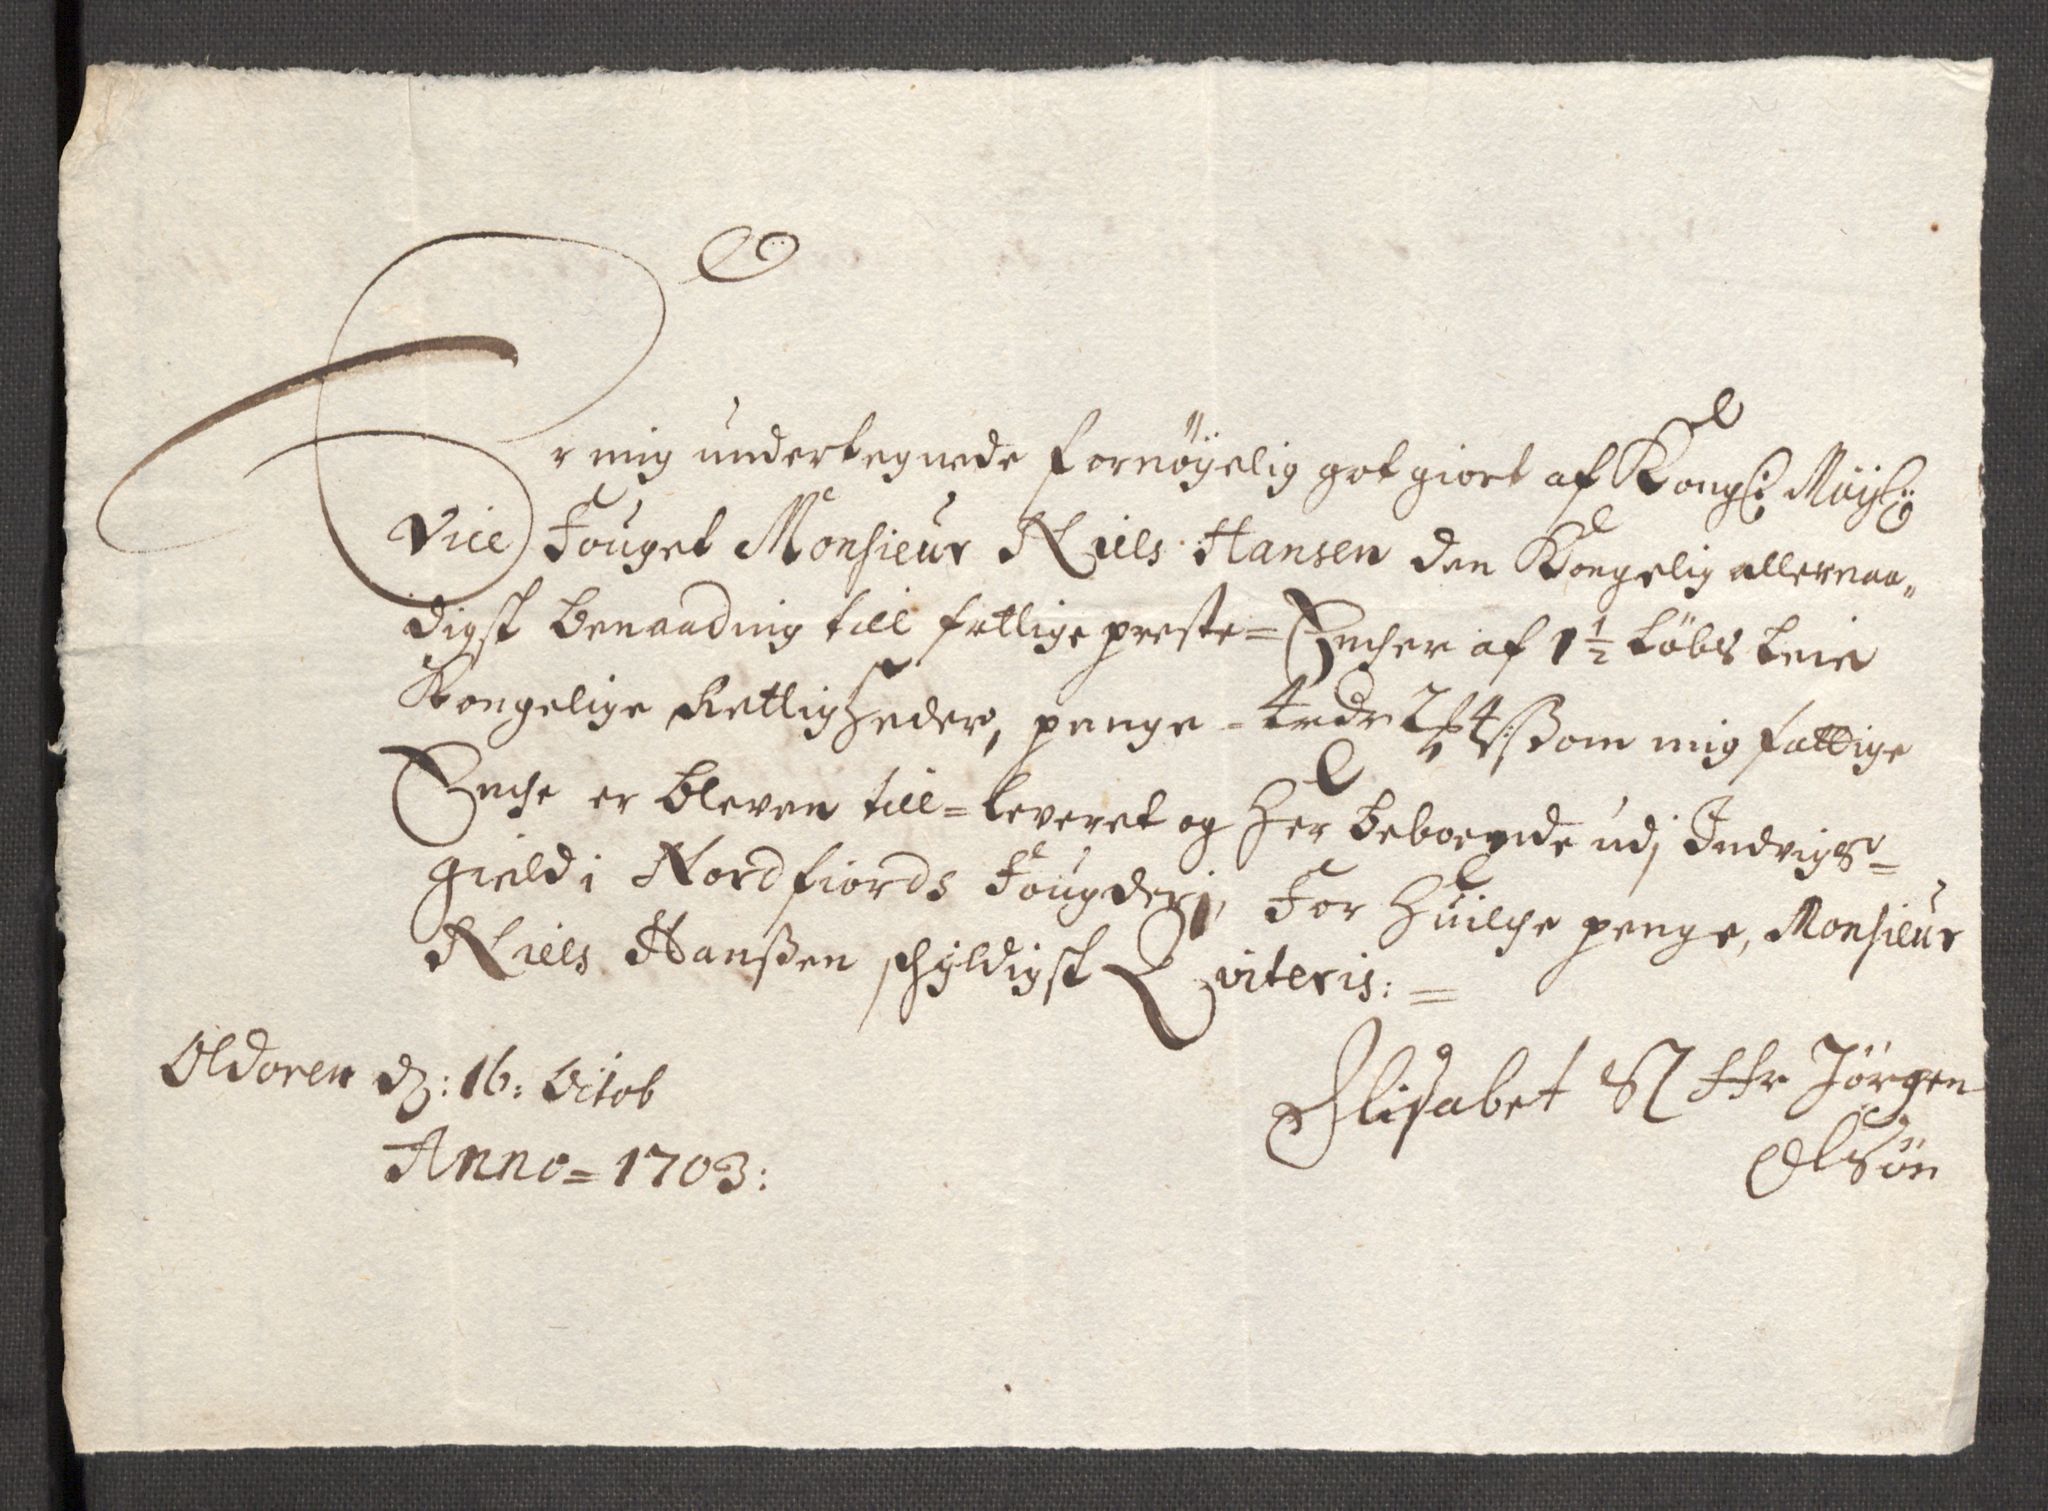 Er mig undertegnede fornöÿelig got giort af Kongl: Mayts:
Vice Fouget Monsieur Niels Hansen den Kongelig allernaa„
digst benaading till fattige preste= Encher af 1½ Löbs Leie
Kongelige Rettigheder, penge - 4 rdr 2 ₰ 4 s: som mig fattige
Enche er bleven till= leveret og her beboende udj Indvigs=
gield i Nordfiords Fougderj, For huilche penge, Monsieur
Niels Hanßen schÿldigst Qviteris: =
Oldören d: 16: Octob
Anno = 1703:
Elisabet Sl Hr Jörgen
OlSön